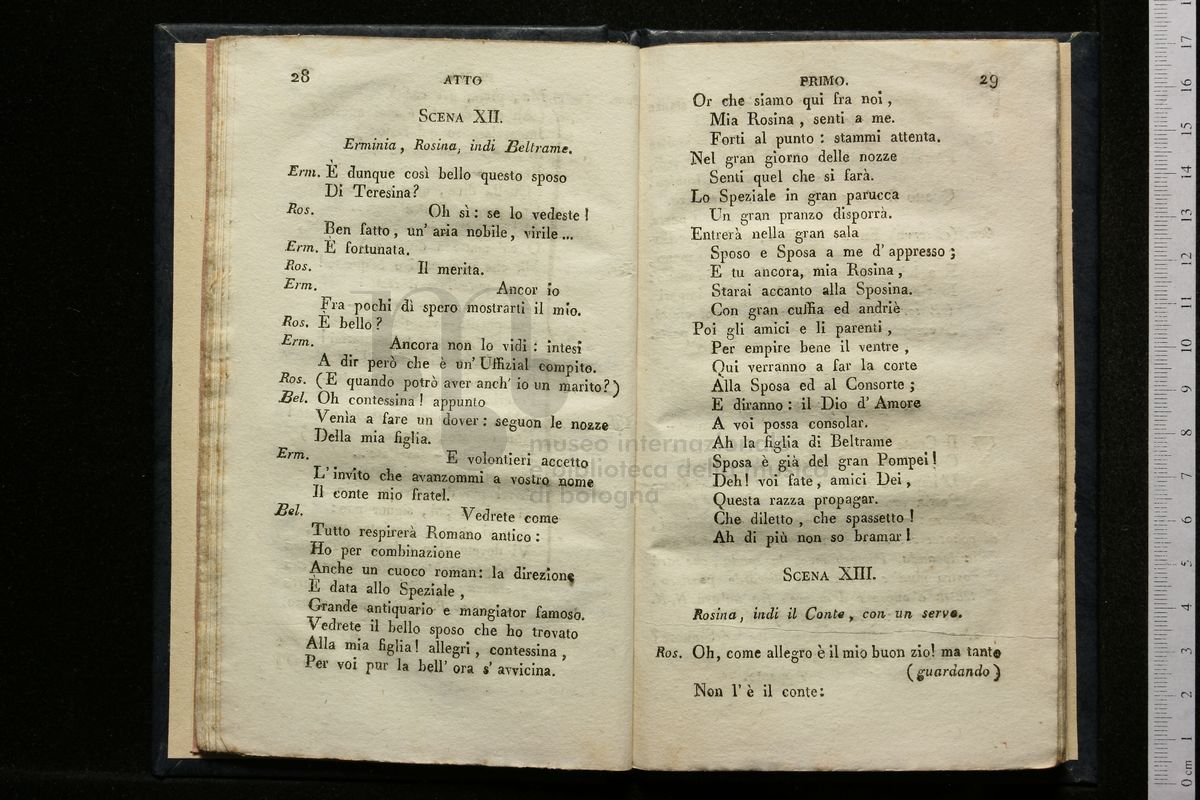 28
ATTO
SCENA XII.
Erminia, Rosina, indi Beltrame.
Erm. È dunque così bello questo sposo
Di Teresina?
Ros. Oh sì: se lo vedeste!
Ben fatto, un' aria nobile, virile ...
Erm. È fortunata.
Ros. Il merita.
Erm. Ancor io
Fra pochi dì spero mostrarti il mio.
Ros. È bello?
Erm. Ancora non lo vidi: intesi
A dir però che è un' Uffizial compito.
Ros. (E quando potrò aver anch' io un marito?)
Bel. Oh contessina! appunto
Venìa a fare un dover: seguon le nozze
Della mia figlia.
Erm. E volontieri accetto
L' invito che avanzommi a vostro nome
Il conte mio fratel.
Bel. Vedrete come
Tutto respirerà Romano antico:
Ho per combinazione
Anche un cuoco roman: la direzione
È data allo Speziale,
Grande antiquario e mangiator famoso.
Vedrete il bello sposo che ho trovato
Alla mia figlia! allegri, contessina,
Per voi pur la bell' ora s' avvicina.
PRIMO.
29
Or che siamo qui fra noi,
Mia Rosina, senti a me.
Forti al punto: stammi attenta.
Nel gran giorno delle nozze
Senti quel che si farà.
Lo Speziale in gran parucca
Un gran pranzo disporrà.
Entrerà nella gran sala
Sposo e Sposa a me d' appresso;
E tu ancora, mia Rosina,
Starai accanto alla Sposina.
Con gran cuffia ed andriè
Poi gli amici e li parenti,
Per empire bene il ventre,
Qui verranno a far la corte
Alla Sposa ed al Consorte;
E diranno: il Dio d' Amore
A voi possa consolar.
Ah la figlia di Beltrame
Sposa è già del gran Pompei!
Deh! voi fate, amici Dei,
Questa razza propagar.
Che diletto, che spassetto!
Ah di più non so bramar!
SCENA XIII.
Rosina, indi il Conte, con un servo.
Ros. Oh, come allegro è il mio buon zio! ma tanto
(guardando)
Non l' è il conte:
museo internazionale
e biblioteca della musica
di bologna
0 cm 1 2 3 4 5 6 7 8 9 10 11 12 13 14 15 16 17